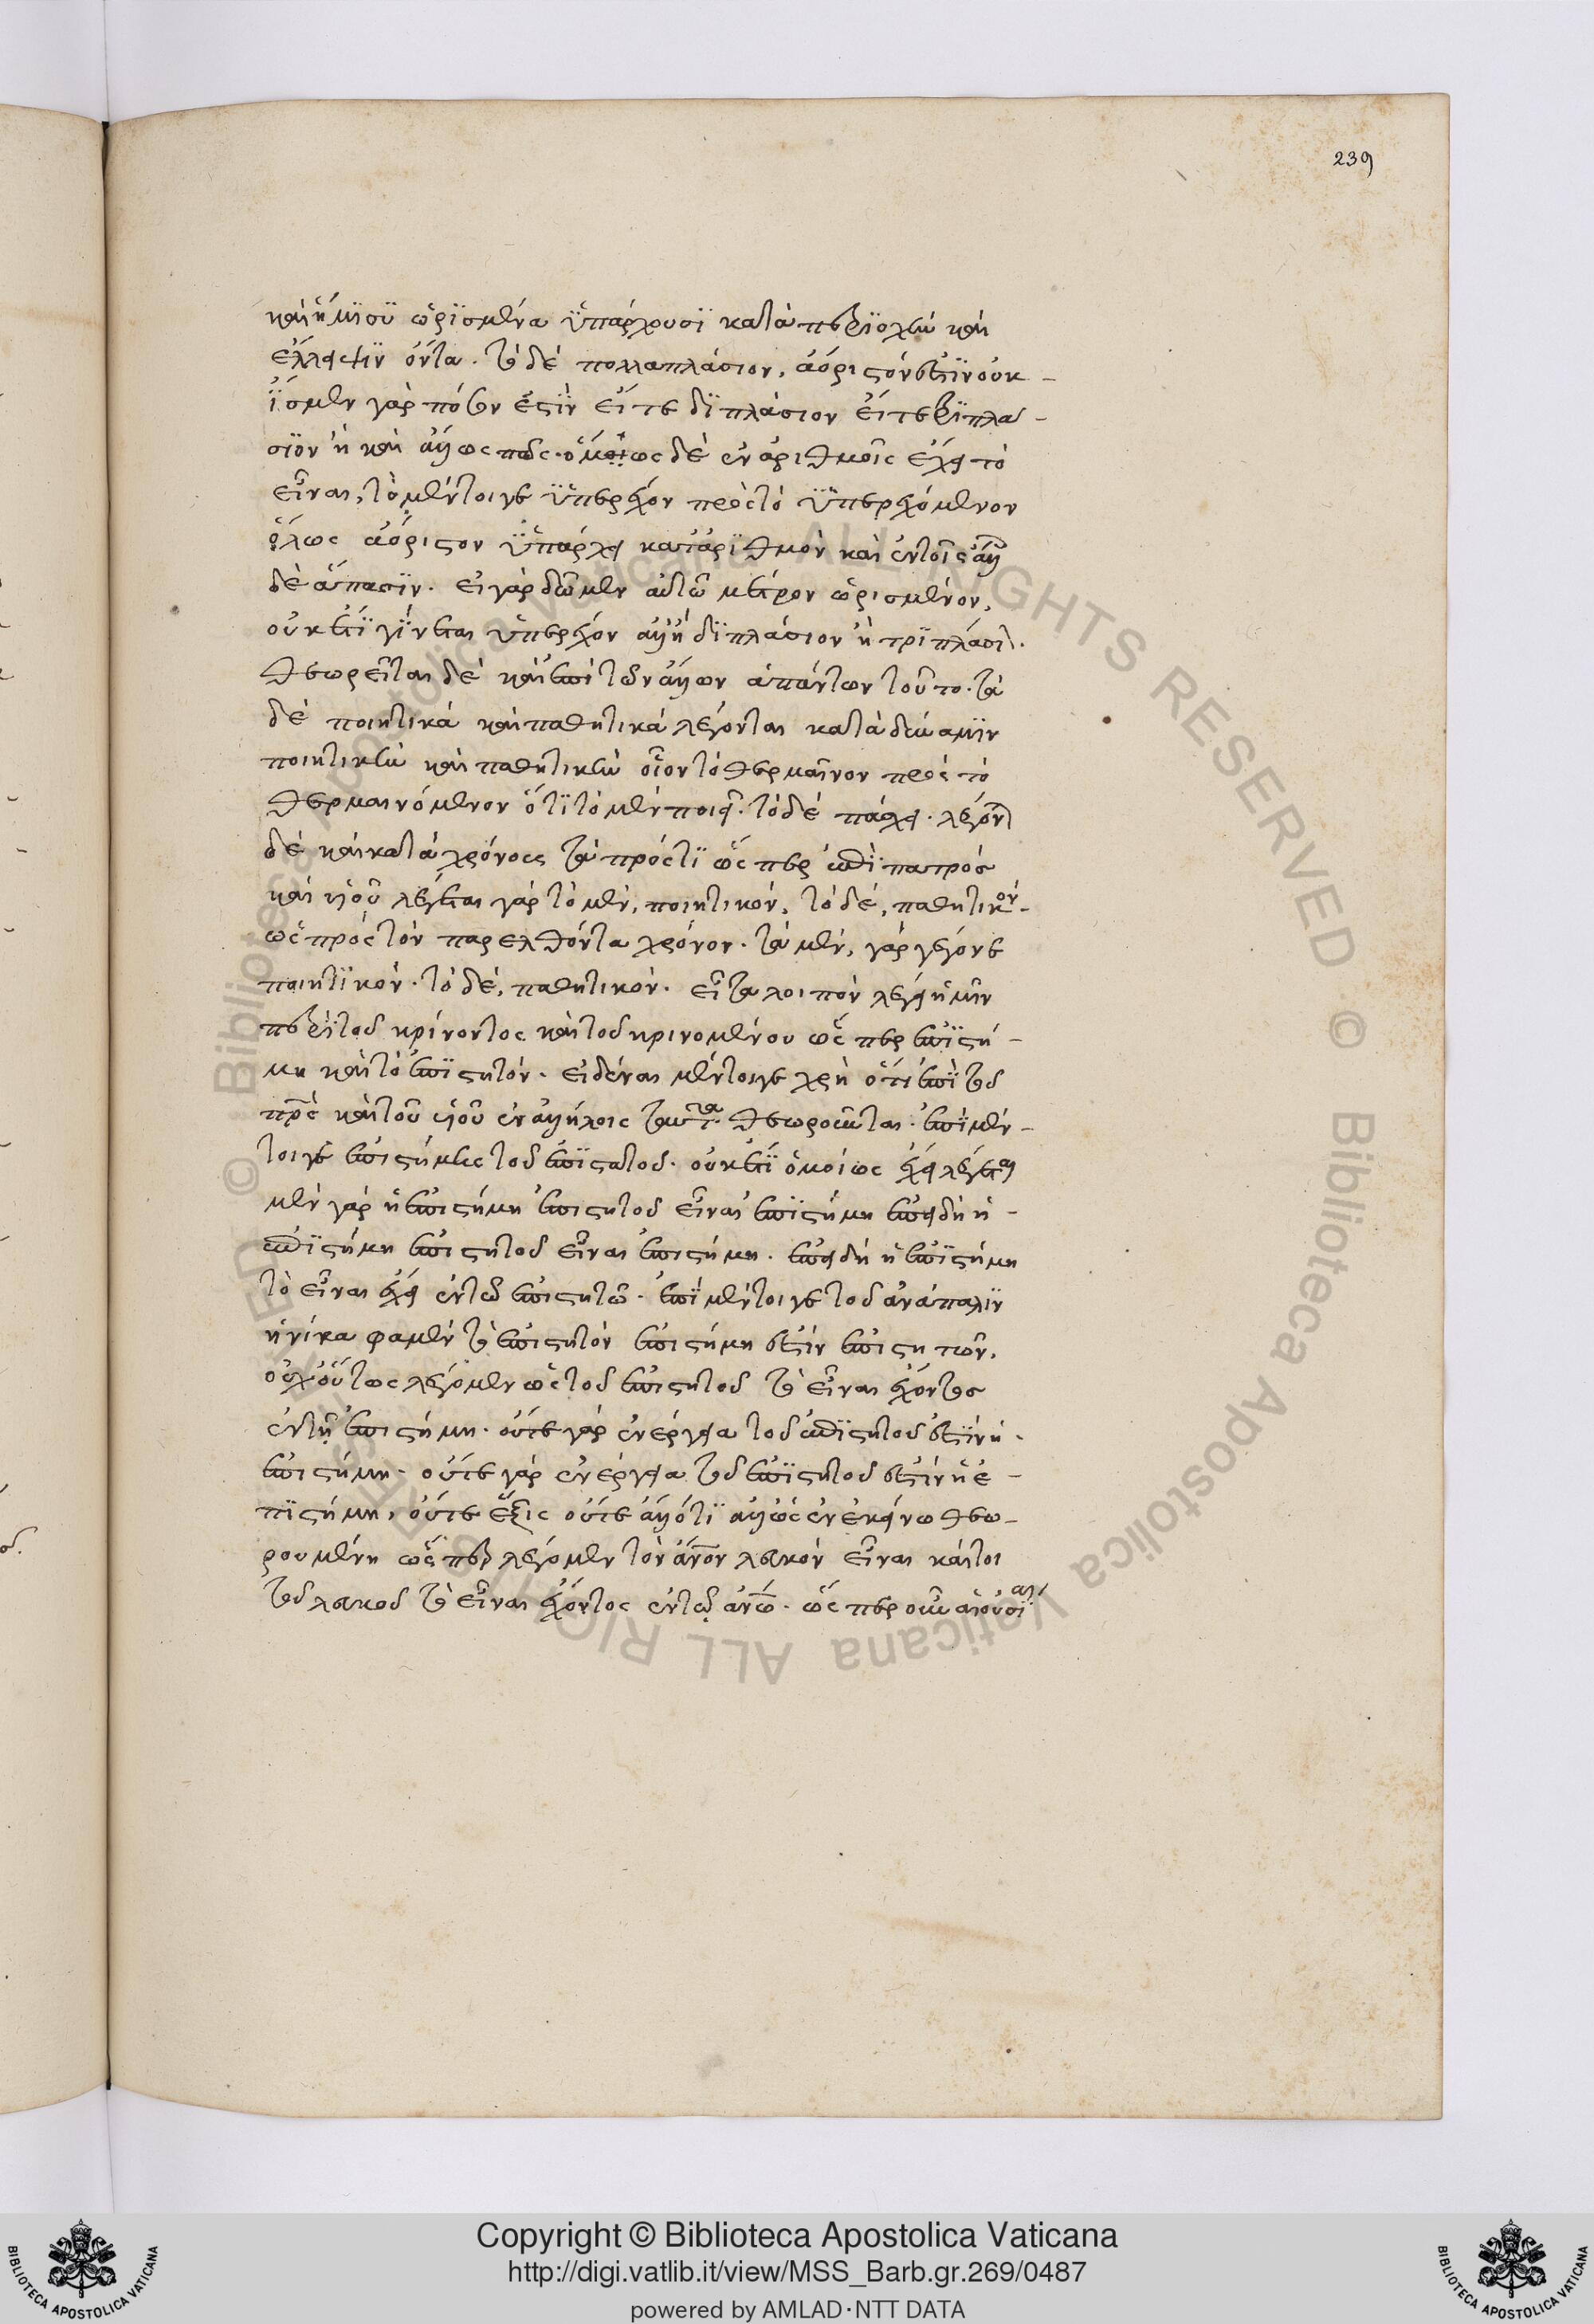 239
καὶ ἥμισυ ὡρισμένα ὑπάρχουσι κατὰ περιοχὴν καὶ
ἔλλειψιν ὄντα. τὸ δὲ πολλαπλάσιον, ἀόριστόν ἐστιν οὐκ -
ἴσμεν γὰρ πότερον ἐστὶν εἴτε διπλάσιον εἴτε τριπλά -
σιον ἢ καὶ ἄλλως πως. ὅμως δὲ ἐν ἀριθμοῖς ἔχει τὸ
εἶναι, τὸ μέντοιγε ὑπερέχον πρὸς τὸ ὑπερεχόμενον
ὅλως ἀόριστον ὑπάρχει κατ' ἀριθμὸν καὶ ἐν τοῖς ἄλλοις
δὲ ἅπασιν. εἰ γὰρ δῶμεν αὐτῷ μέτρον ὡρισμένον,
οὐκέτι γίνεται ὑπερέχον ἀλλ' ἢ διπλάσιον ἢ τριπλάσιον.
θεωρεῖται δὲ καὶ ἐπὶ τῶν ἄλλων ἁπάντων τοῦτο. τὰ
δὲ ποιητικὰ καὶ παθητικὰ λέγονται κατὰ δύναμιν
ποιητικὴν καὶ παθητικὴν οἷον τὸ θερμαῖνον πρὸς τὸ
θερμαινόμενον ὅτι τὸ μὲν ποιεῖ. τὸ δὲ πάσχει. λέγονται
δὲ καὶ κατὰ χρόνους τὰ πρός τι ὥσπερ ἐπὶ πατρός
καὶ υἱοῦ λέγεται γὰρ τὸ μὲν, ποιητικόν, τὸ δέ, παθητικόν -
ὡς πρὸς τὸν παρελθόντα χρόνον. τὰ μὲν, γὰρ γέγονε
ποιητικὸν. τὸ δέ, παθητικόν. εἶτα λοιπὸν λέγει ἡμῖν
περὶ τοῦ κρίνοντος καὶ τοῦ κρινομένου ὥσπερ ἐπιστή -
μη καὶ τὸ ἐπιστητόν. εἰδέναι μέντοιγε χρὴ ὅτι ἐπὶ τοῦ
πρς καὶ τοῦ υἱοῦ ἐν ἀλλήλοις ταῦτα θεωροῦνται. ἐπὶ μέν -
τοιγε ἐπιστήμης τοῦ ἐπιστητοῦ. οὐκέτι ὁμοίως ἔχει λέγεται
μὲν γὰρ ἡ ἐπιστήμη ἐπιστητοῦ εἶναι ἐπιστήμη ἐπειδὴ ἡ -
ἐπιστήμη ἐπιστητοῦ εἶναι ἐπιστήμη. ἐπειδὴ ἡ ἐπιστήμη
τὸ εἶναι ἔχει ἐν τῷ ἐπιστητῷ. ἐπὶ μέντοιγε τοῦ ἀνάπαλιν
ἡνίκα φαμὲν τὸ ἐπιστητὸν ἐπιστήμη ἐστὶν ἐπιστητῶν,
οὐχ οὕτως λέγομεν ὡς τοῦ ἐπιστητοῦ τὸ εἶναι ἔχοντος
ἐν τῇ ἐπιστήμη. οὔτε γὰρ ἐνέργεια τοῦ ἐπιστητοῦ ἐστὶν ἡ.
ἐπιστήμη. οὔτε γὰρ ἐνέργεια τοῦ ἐπιστητοῦ ἐστὶν ἡ ἐ -
πιστήμη, οὔτε ἕξις οὔτε ἄλλο τι ἀλλ' ὡς ἐν ἐκείνω θεω -
ρουμένη ὥσπερ λέγομεν τὸν ἄνον λευκὸν εἶναι καίτοι
τοῦ λευκοῦ τὸ εἶναι ἔχοντος ἐν τῷ ἀνῶ. ὥσπερ οὖν αἱ οὐσίαι
Copyright © Biblioteca Apostolica Vaticana
http://digi.vatlib.it/view/MSS_Barb.gr.269/0487
powered by AMLAD·NTT DATA
BIBLIOTECA APOSTOLICA VATICANA
BIBLIOTECA APOSTOLICA VATICANA
© Biblioteca Apostolica Vaticana ALL RIGHTS RESERVED © Biblioteca Apostolica Vaticana ALL RIGHTS RESERVED